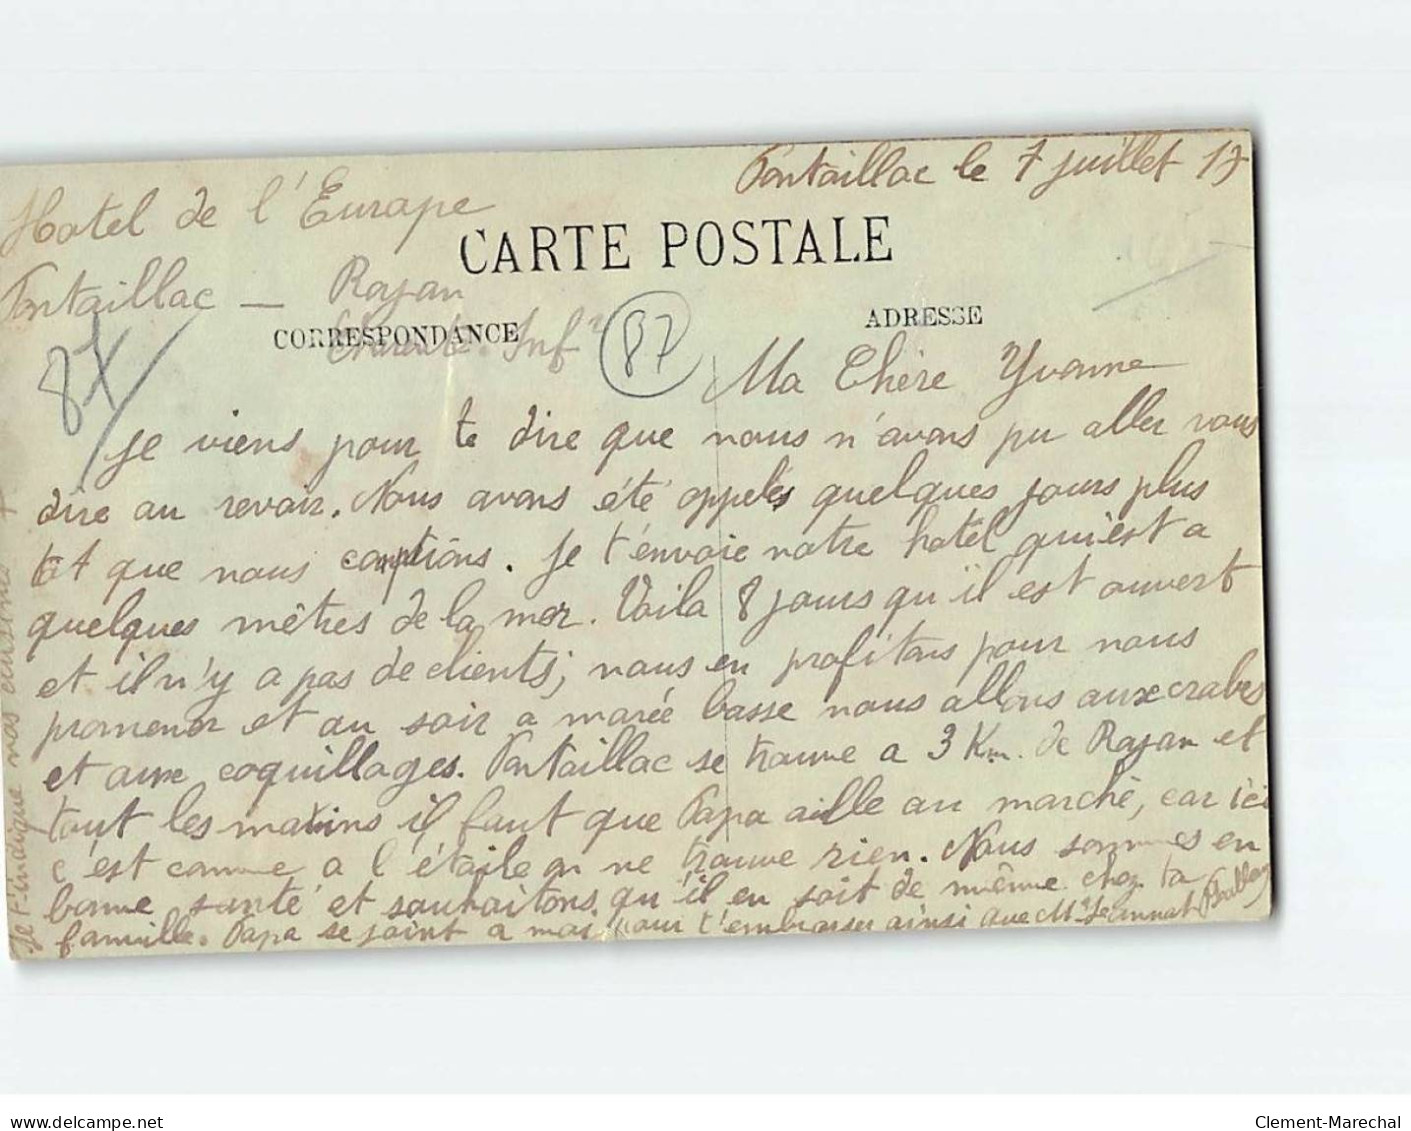 Pontaillac le 7 juillet 17
Hotel de l'Europe
CARTE POSTALE
Pontaillac — Royan
Charente Infre
CORRESPONDANCE
ADRESSE
87
87
Ma Chère Yvonne
Je viens pour te dire que nous n'avons pu aller vous
dire au revoir. Nous avons été appelés quelques jours plus
tot que nous comptions. Je t'envoie notre hotel qui est a
quelques mètres de la mer. Voila 8 jours qu'il est ouvert
et il n'y a pas de clients; nous en profitons pour nous
promener et au soir a marée basse nous allons aux crabes
et aux coquillages. Pontaillac se trouve a 3 Km. de Royan et
tout les matins il faut que Papa aille au marché, car ici
c'est comme a l'étoile on ne trouve rien. Nous sommes en
bonne santé et souhaitons qu'il en soit de même chez ta
famille. Papa se joint a moi pour t'embrasser ainsi que Mr Jeannat
Je t'indique nos
www.delcampe.net
Clement-Marechal